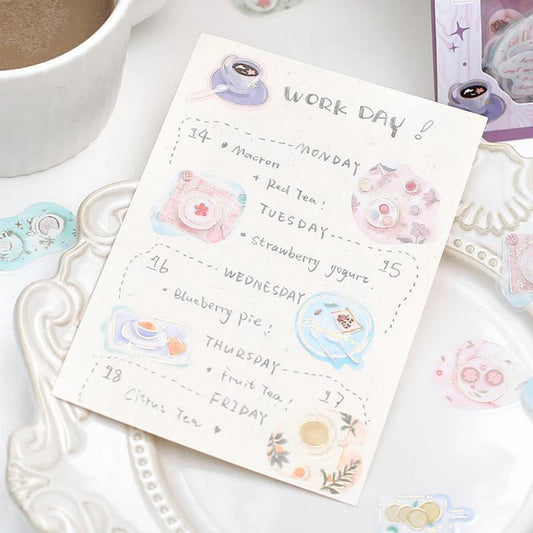 WORK DAY!
14
MONDAY
• Macron
+ Red Tea!
TUESDAY
15
• Strawberry yogurt
16
WEDNESDAY
• Blueberry Pie!
THURSDAY
17
• Fruit Tea!
18
FRIDAY
Citus Tea ♥